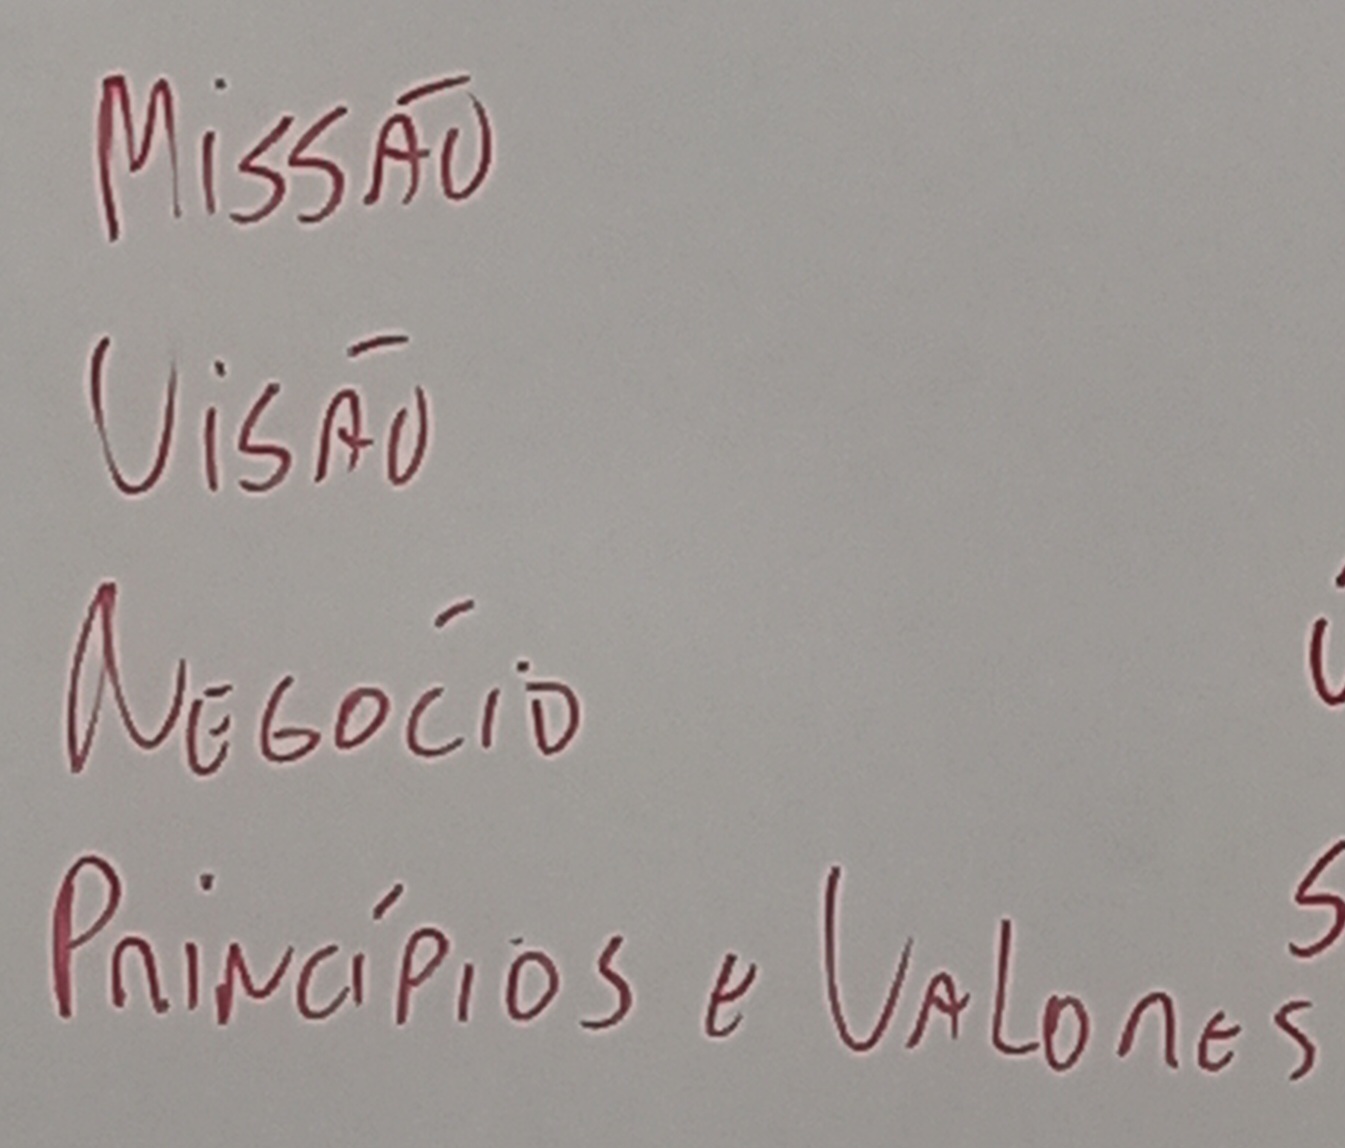 Missão
Visão
Negócio
Princípios e Valores